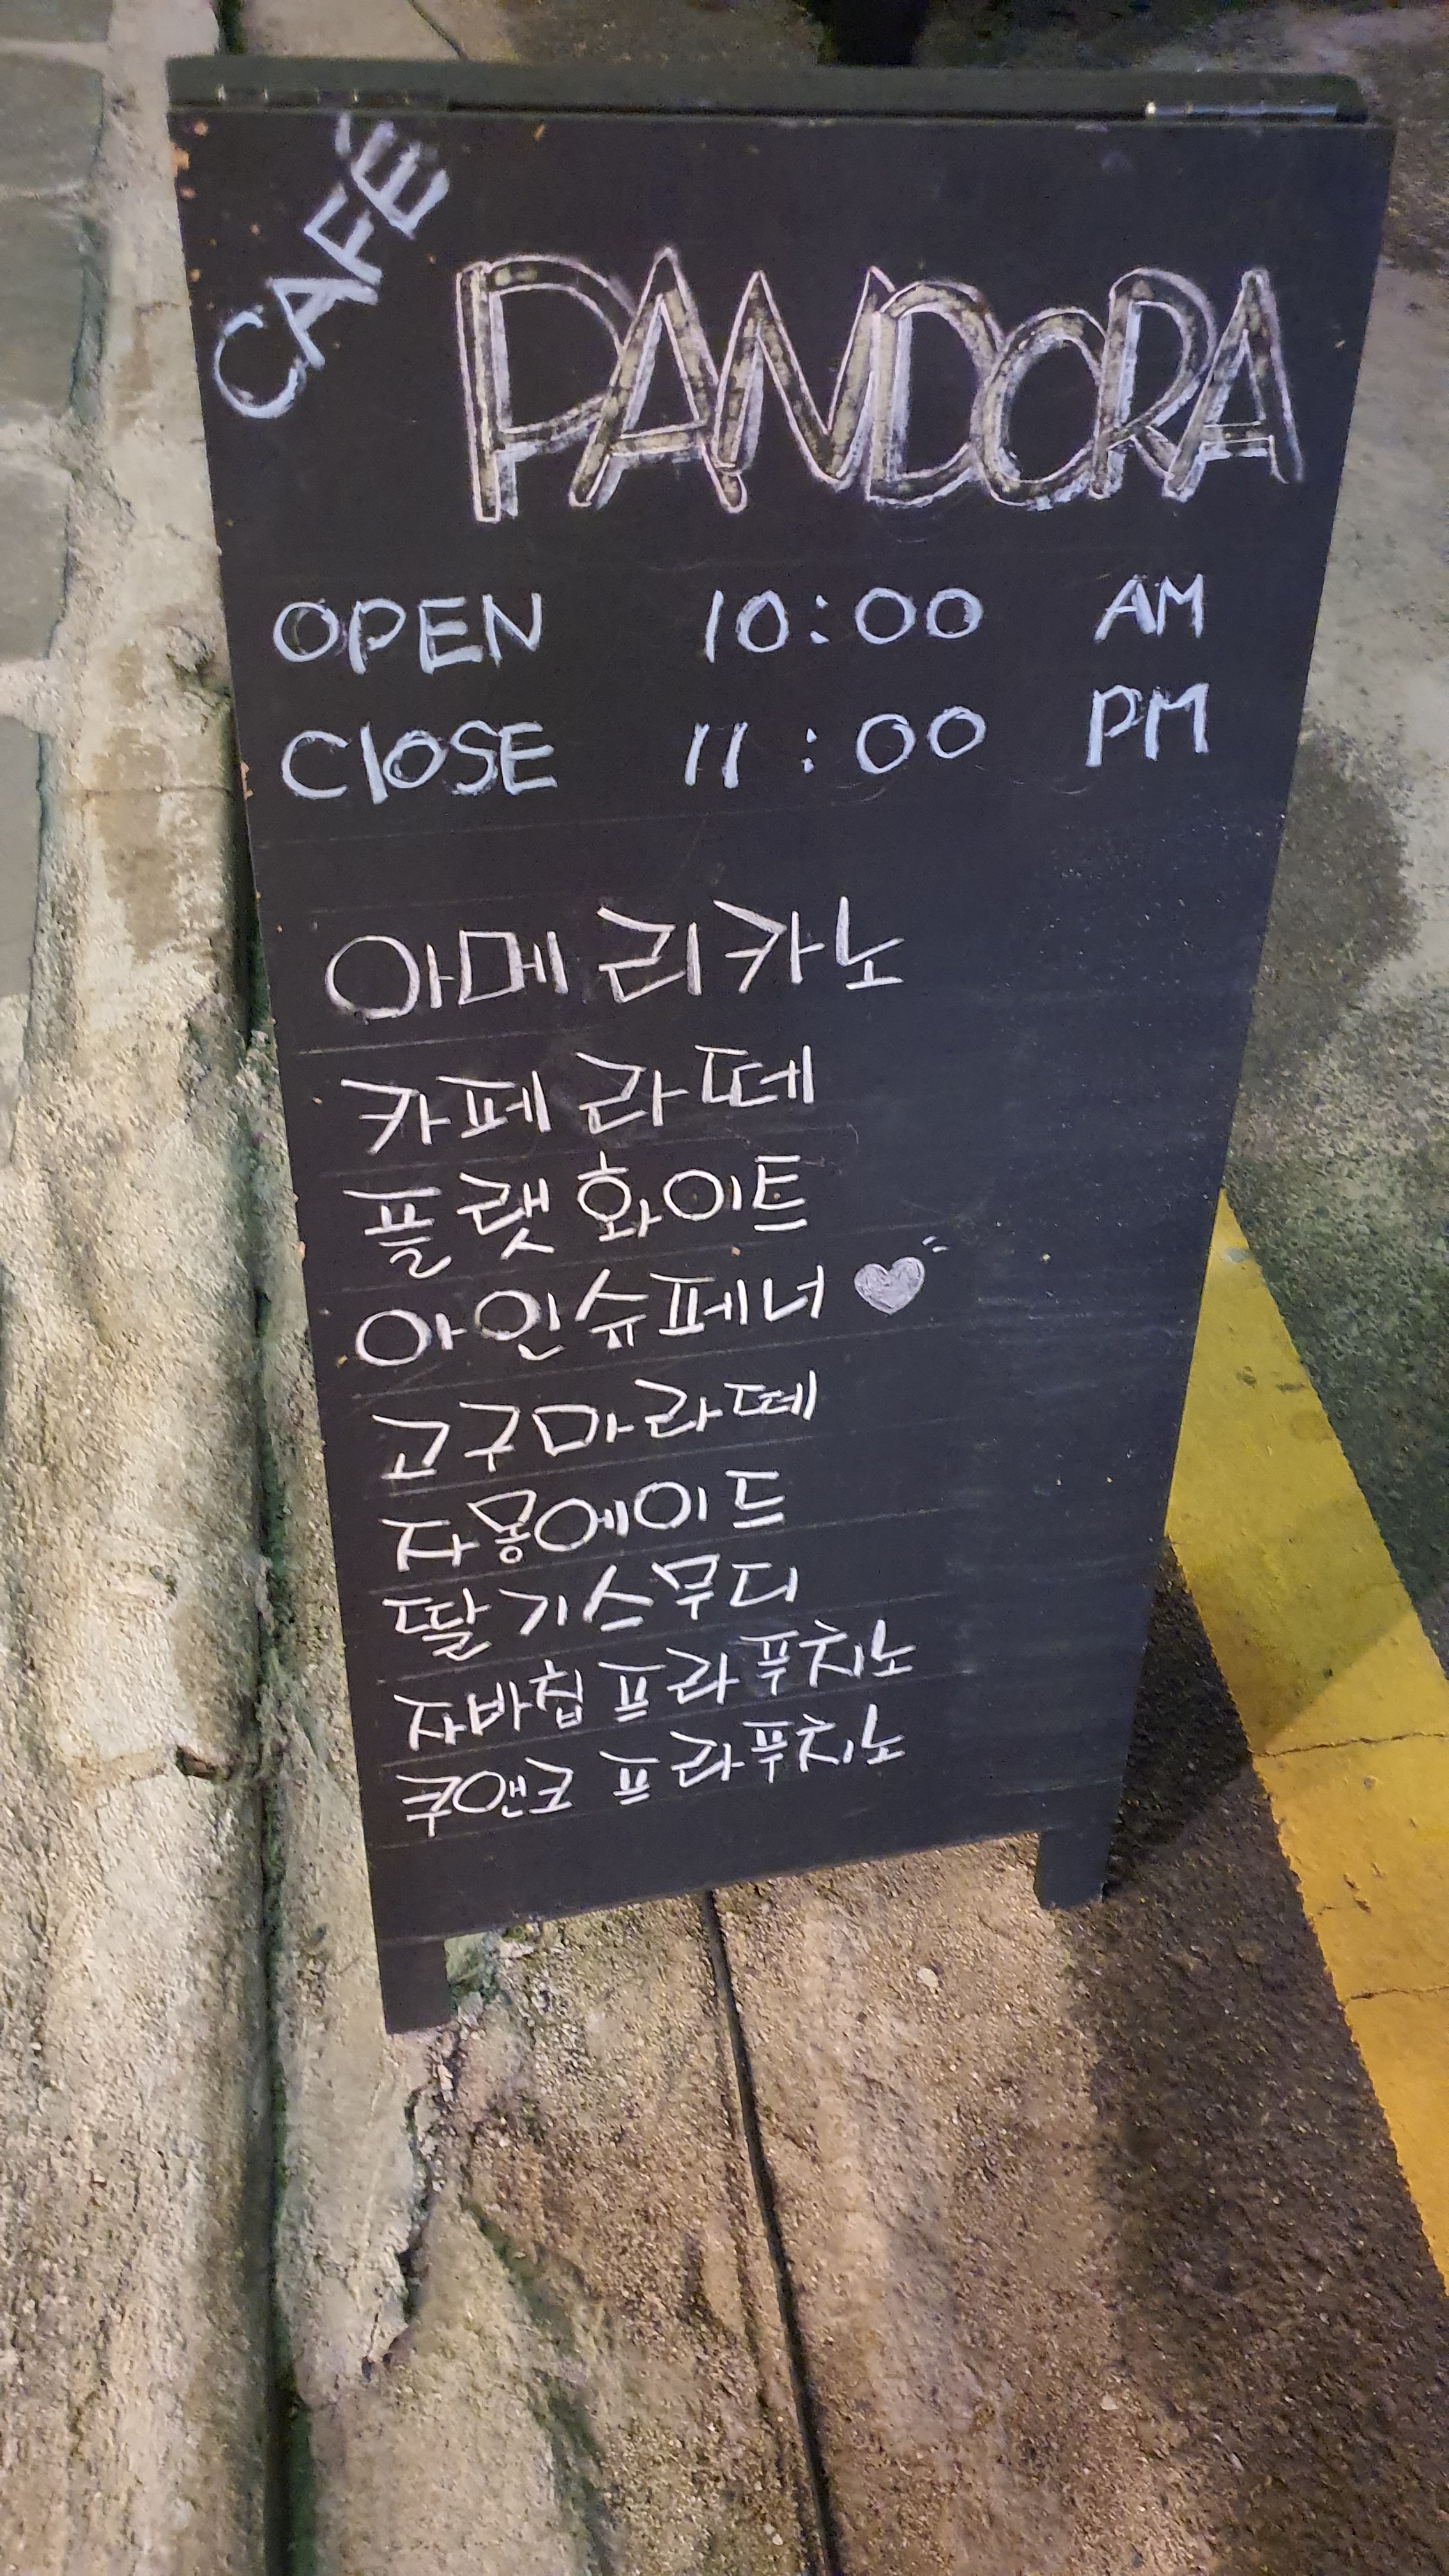 CAFÉ
PANDORA
OPEN 10:00 AM
ClOSE 11:00 PM
아메리카노
카페라떼
플랫화이트
아인슈페너
고구마라떼
자몽에이드
딸기스무디
자바칩 프라푸치노
쿠앤크 프라푸치노